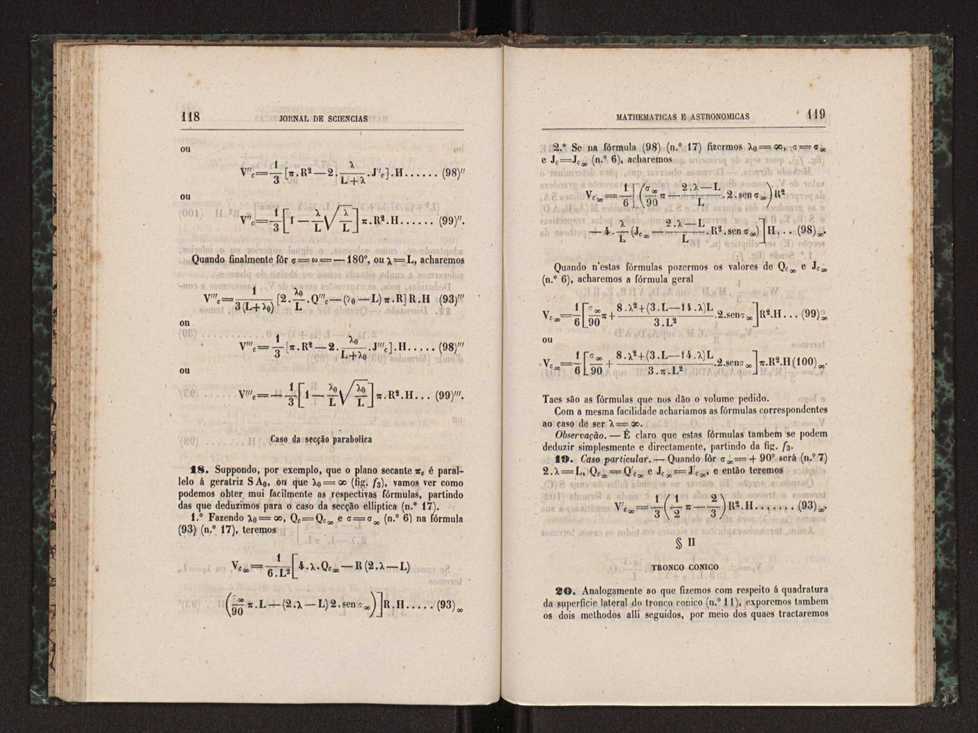 118
JORNAL DE SCIENCIAS
ou
V''ₑ = 1/3 [π.R² — 2. λ/(L+λ) .J'ₑ].H...... (98)''
ou
V''ₑ = 1/3 [1 — λ/L √(λ/L)] π.R².H...... (99)''.
Quando finalmente fôr σ = ω = — 180°, ou λ = L, acharemos
V'''ₑ = 1/(3(L+λ₀)) [2. λ₀/L .Q'''ₑ — (λ₀ — L) π.R] R.H (93)'''
ou
V'''ₑ = 1/3 [π.R² — 2. λ₀/(L+λ₀) .J'''ₑ].H..... (98)'''
ou
V'''ₑ = — 1/3 [1 — λ₀/L √(λ₀/L)] π.R².H... (99)'''.
Caso da secção parabolica
18. Suppondo, por exemplo, que o plano secante πₑ é paral-
lelo á geratriz S A₀, ou que λ₀ = ∞ (fig. f₃), vamos ver como
podemos obter mui facilmente as respectivas fórmulas, partindo
das que deduzimos para o caso da secção elliptica (n.º 17).
1.º Fazendo λ₀ = ∞, Qₑ = Qₑ∞ e σ = σ∞ (n.º 6) na fórmula
(93) (n.º 17), teremos
Vₑ∞ = 1/(6.L²) [4.λ.Qₑ∞ — R (2.λ — L)
(σ∞/90 π.L — (2.λ — L) 2.sen σ∞)] R.H..... (93)∞
MATHEMATICAS E ASTRONOMICAS
119
2.º Se na fórmula (98) (n.º 17) fizermos λ₀ = ∞, σ = σ∞
e Jₑ = Jₑ∞ (n.º 6), acharemos
Vₑ∞ = 1/6 [(σ∞/90 π — (2.λ — L)/L .2.sen σ∞) R²
— 4. λ/L (Jₑ∞ — (2.λ — L)/L .R².sen σ∞)] H... (98)∞.
Quando n'estas fórmulas pozermos os valores de Qₑ∞ e Jₑ∞
(n.º 6), acharemos a fórmula geral
Vₑ∞ = 1/6 [σ∞/90 π + (8.λ²+(3.L—14.λ)L)/(3.L²) .2.sen σ∞] R².H... (99)∞
ou
Vₑ∞ = 1/6 [σ∞/90 + (8.λ²+(3.L—14.λ)L)/(3.π.L²) .2.sen σ∞] π.R².H (100)∞.
Taes são as fórmulas que nos dão o volume pedido.
Com a mesma facilidade achariamos as fórmulas correspondentes
ao caso de ser λ = ∞.
Observação. — É claro que estas fórmulas tambem se podem
deduzir simplesmente e directamente, partindo da fig. f₃.
19. Caso particular. — Quando fôr σ∞ = + 90° será (n.º 7)
2.λ = L, Qₑ∞ = Q'ₑ∞ e Jₑ∞ = J'ₑ∞, e então teremos
V'ₑ∞ = 1/3 (1/2 π — 2/3) R².H....... (93)∞.
§ II
TRONCO CONICO
20. Analogamente ao que fizemos com respeito á quadratura
da superficie lateral do tronco conico (n.º 11), exporemos tambem
os dois methodos alli seguidos, por meio dos quaes tractaremos